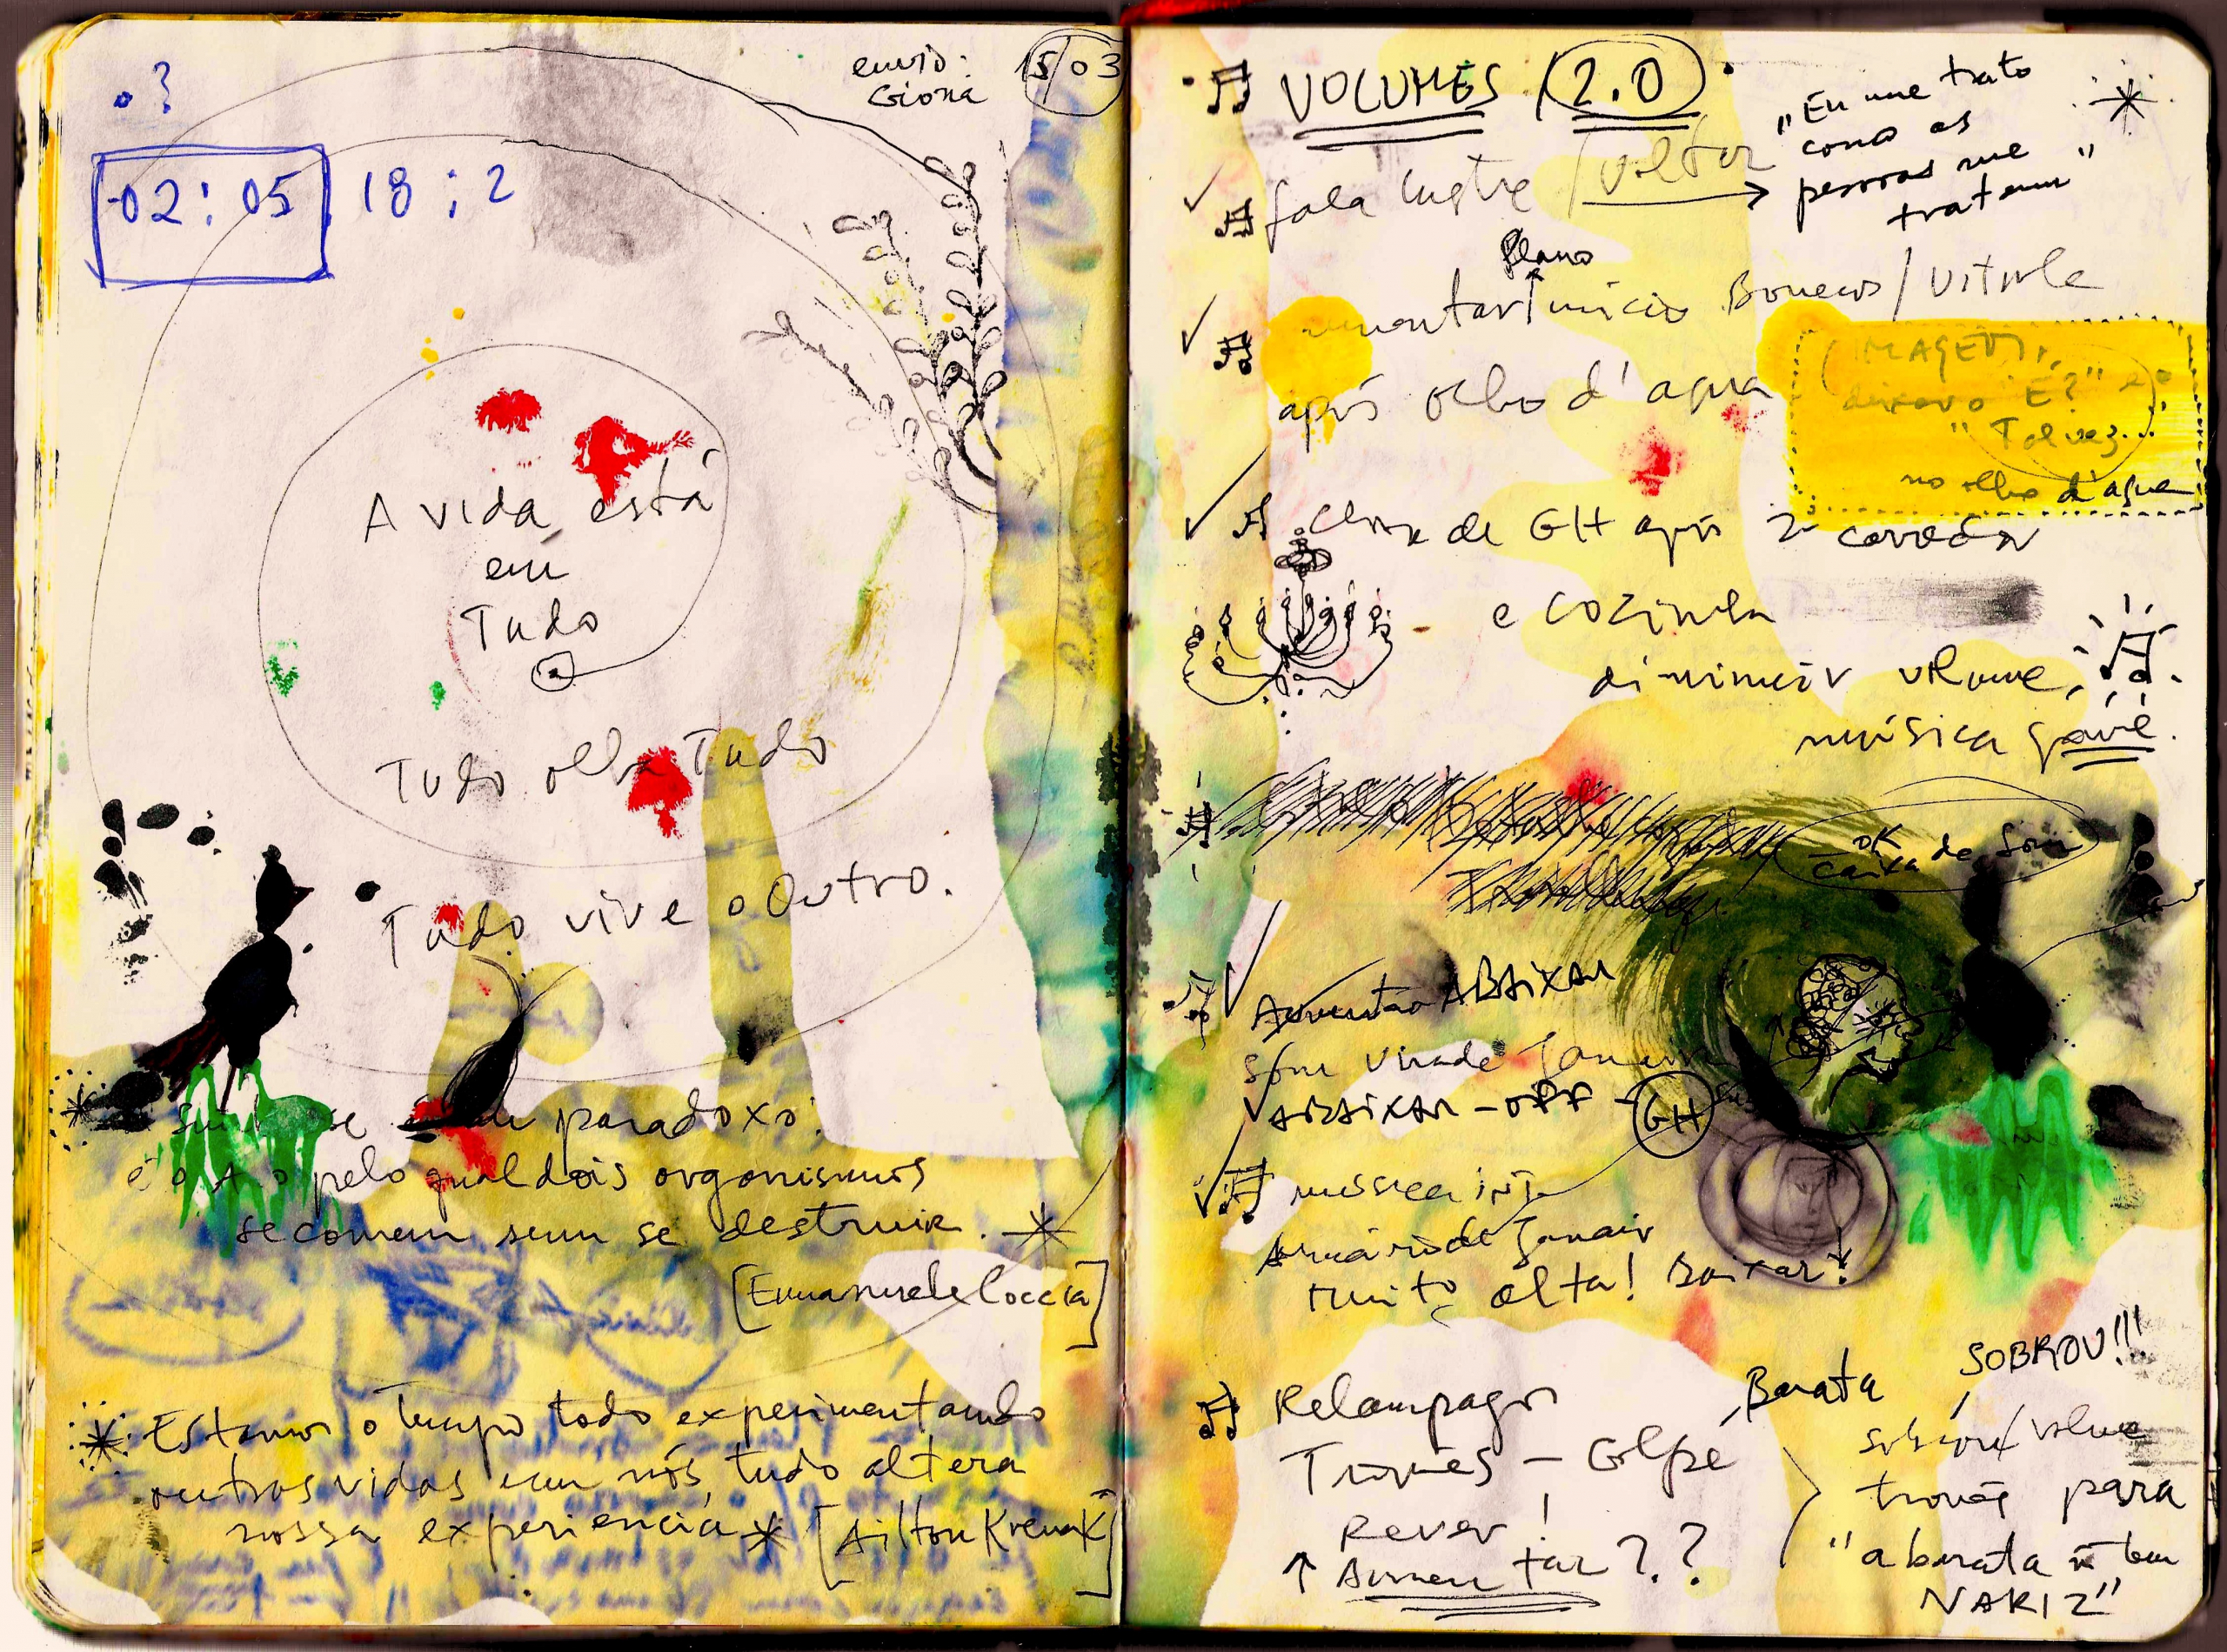 envio:
Giona
15/03
02:05 18:2
A vida está
em
Tudo
Tudo olha Tudo
Tudo vive o Outro.
paradoxo:
pelo qual dois organismos
se comem sem se destruir.
[Emanuele Coccia]
Estamos o tempo todo experimentando
outras vidas em nós, tudo altera
nossa experiencia [Ailton Krenak]
VOLUMES (2.0)
"Eu me trato
como as
pessoas me
tratam"
fala lustre / voltar
Plano
início Bonecos / Vitrole
após olho d'agua
IMAGEM
"E?" e
"Talvez
no olho d'agua
close de GH após 2º corredor
e cozinha
diminuir volume
música gavê.
OK
caixa de Som
Aumentar ABAIXAR
som virade Janair
ABAIXAR - OFF - GH
musica
Armário de Janair
muito alta! Baixar!
Relampagos
Trovões - Golpe
Rever!
↑ Aumentar??
Barata
SOBROU!!!
volume
trovões para
"a barata ñ tem
NARIZ"